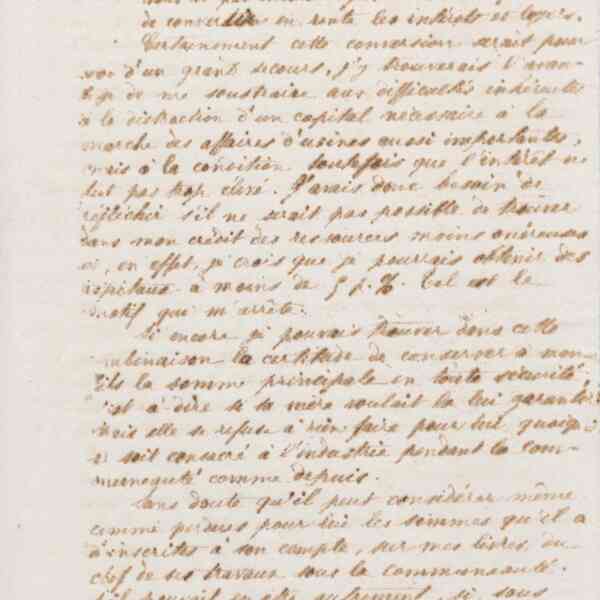 de convertir en rente les intérêts et loyers.
Certainement cette conversion serait pour
moi d'un grand secours, j'y trouverais l'avan-
tage de me soustraire aux difficultés inhérentes
à la distraction d'un capital nécessaire à la
marche des affaires d'usines aussi importantes,
mais à la condition toutefois que l'intérêt ne
fut pas trop élevé. J'avais donc besoin de
réfléchir s'il ne serait pas possible de trouver
dans mon crédit des ressources moins onéreuses
et, en effet, je crois que je pourrais obtenir des
capitaux à moins de 5 p. %. Tel est le
motif qui m'arrête.
Si encore je pouvais trouver dans cette
combinaison la certitude de conserver à mon
fils la somme principale en toute sécurité
c'est à dire si sa mère voulait la lui garantir
mais elle se refuse à rien faire pour lui, quoiqu'
il soit consacré à l'industrie pendant la com-
munauté comme depuis.
Sans doute qu'il peut considérer même
comme perdues pour lui les sommes qu'il a
d'inscrites à son compte, sur mes livres, du
chef de ses travaux sous la communauté.